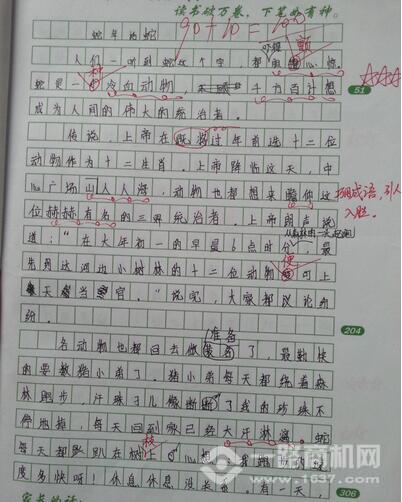 读书破万卷，下笔如有神。
90+10=100
蛇年的蛇
人们一听到蛇这个字，都 心惊。
蛇是一种冷血动物， 千方百计想
51
成为人间的伟大的统治者。
传说，上帝在 过年前选十二位
动物作为十二生肖。上帝降临这天，中
心广场山人人海，动物也都想来瞻仰这
用成语，引人
入胜。
位赫赫有名的三界统治者。上帝朗声说
道：“在大年初一的早晨6点时分，最
先到达河边小树林的十二位动物便可上
天当官。”说完，大家都议论纷
纷。
204
准备
各动物也都回去做 了，最勤快
的要数猪小弟了。猪小弟每天都绕着森
林跑步，汗珠子儿 了我的珍珠不
停地掉，每天回到家已经大汗淋漓。蛇
每天都趴在树枝上 心想：我 的速
度多快呀！休息休息没长 ，有一天，
306
家长的话：
一路商机网
www.1637.com